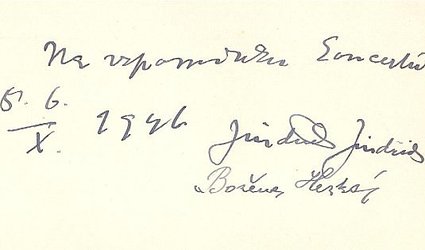 Na vzpomínku koncertů
5. 6.
X. 1946
Jindřich Jindřich
Božena